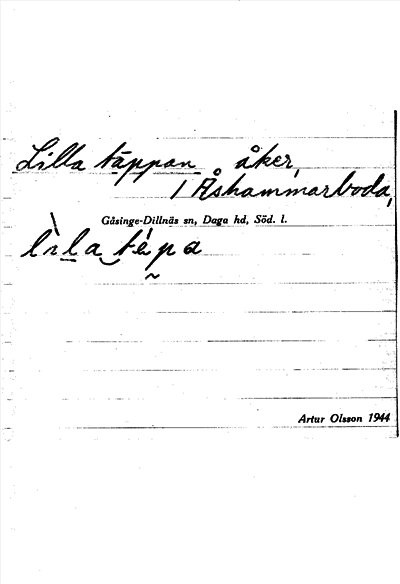 Lilla täppan åker,
i Åshammarboda,
Gåsinge-Dillnäs sn, Daga hd, Söd. l.
lìla tépa
Artur Olsson 1944